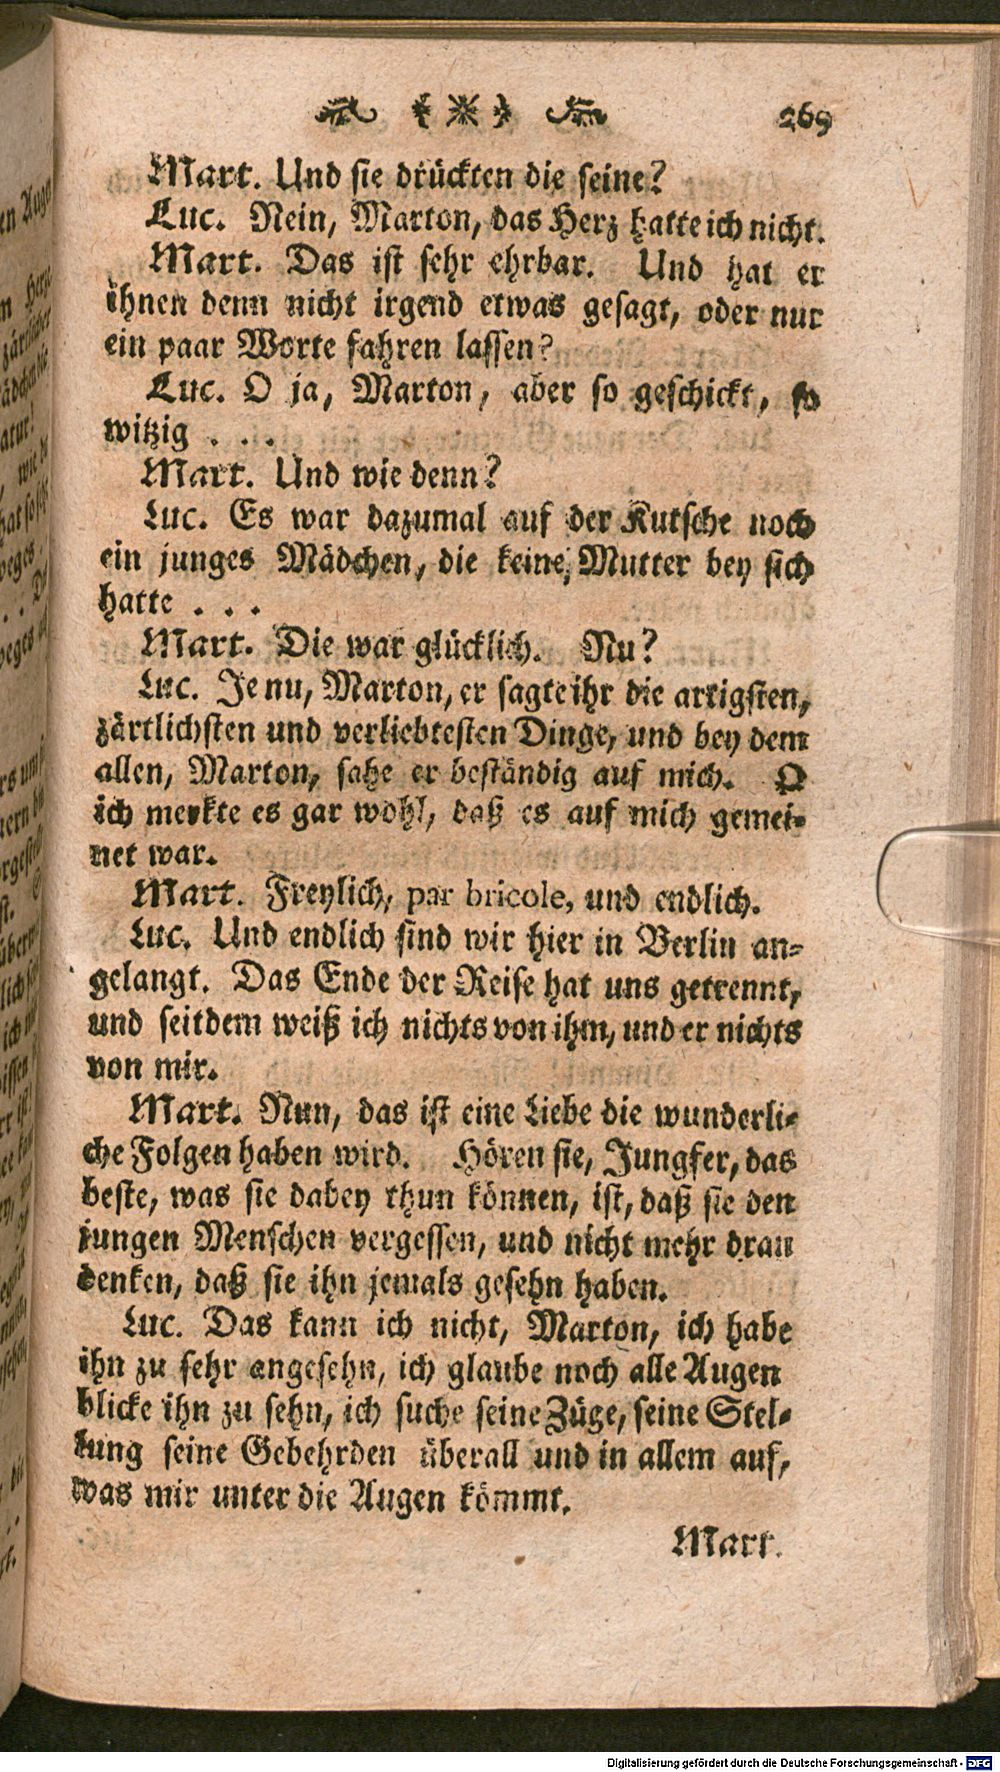 269
Mart. Und sie drückten die seine?
Luc. Nein, Marton, das Herz hatte ich nicht.
Mart. Das ist sehr ehrbar. Und hat er
ihnen denn nicht irgend etwas gesagt, oder nur
ein paar Worte fahren lassen?
Luc. O ja, Marton, aber so geschickt, so
witzig . . .
Mart. Und wie denn?
Luc. Es war dazumal auf der Kutsche noch
ein junges Mädchen, die keine, Mutter bey sich
hatte . . .
Mart. Die war glücklich. Nu?
Luc. Je nu, Marton, er sagte ihr die artigsten,
zärtlichsten und verliebtesten Dinge, und bey dem
allen, Marton, sahe er beständig auf mich. O
ich merkte es gar wohl, daß es auf mich gemei-
net war.
Mart. Freylich, par bricole, und endlich.
Luc. Und endlich sind wir hier in Berlin an-
gelangt. Das Ende der Reise hat uns getrennt,
und seitdem weiß ich nichts von ihm, und er nichts
von mir.
Mart. Nun, das ist eine Liebe die wunderli-
che Folgen haben wird. Hören sie, Jungfer, das
beste, was sie dabey thun können, ist, daß sie den
jungen Menschen vergessen, und nicht mehr dran
denken, daß sie ihn jemals gesehn haben.
Luc. Das kann ich nicht, Marton, ich habe
ihn zu sehr angesehn, ich glaube noch alle Augen
blicke ihn zu sehn, ich suche seine Züge, seine Stel-
lung seine Gebehrden überall und in allem auf,
was mir unter die Augen kömmt.
Mart.
Digitalisierung gefördert durch die Deutsche Forschungsgemeinschaft - DFG